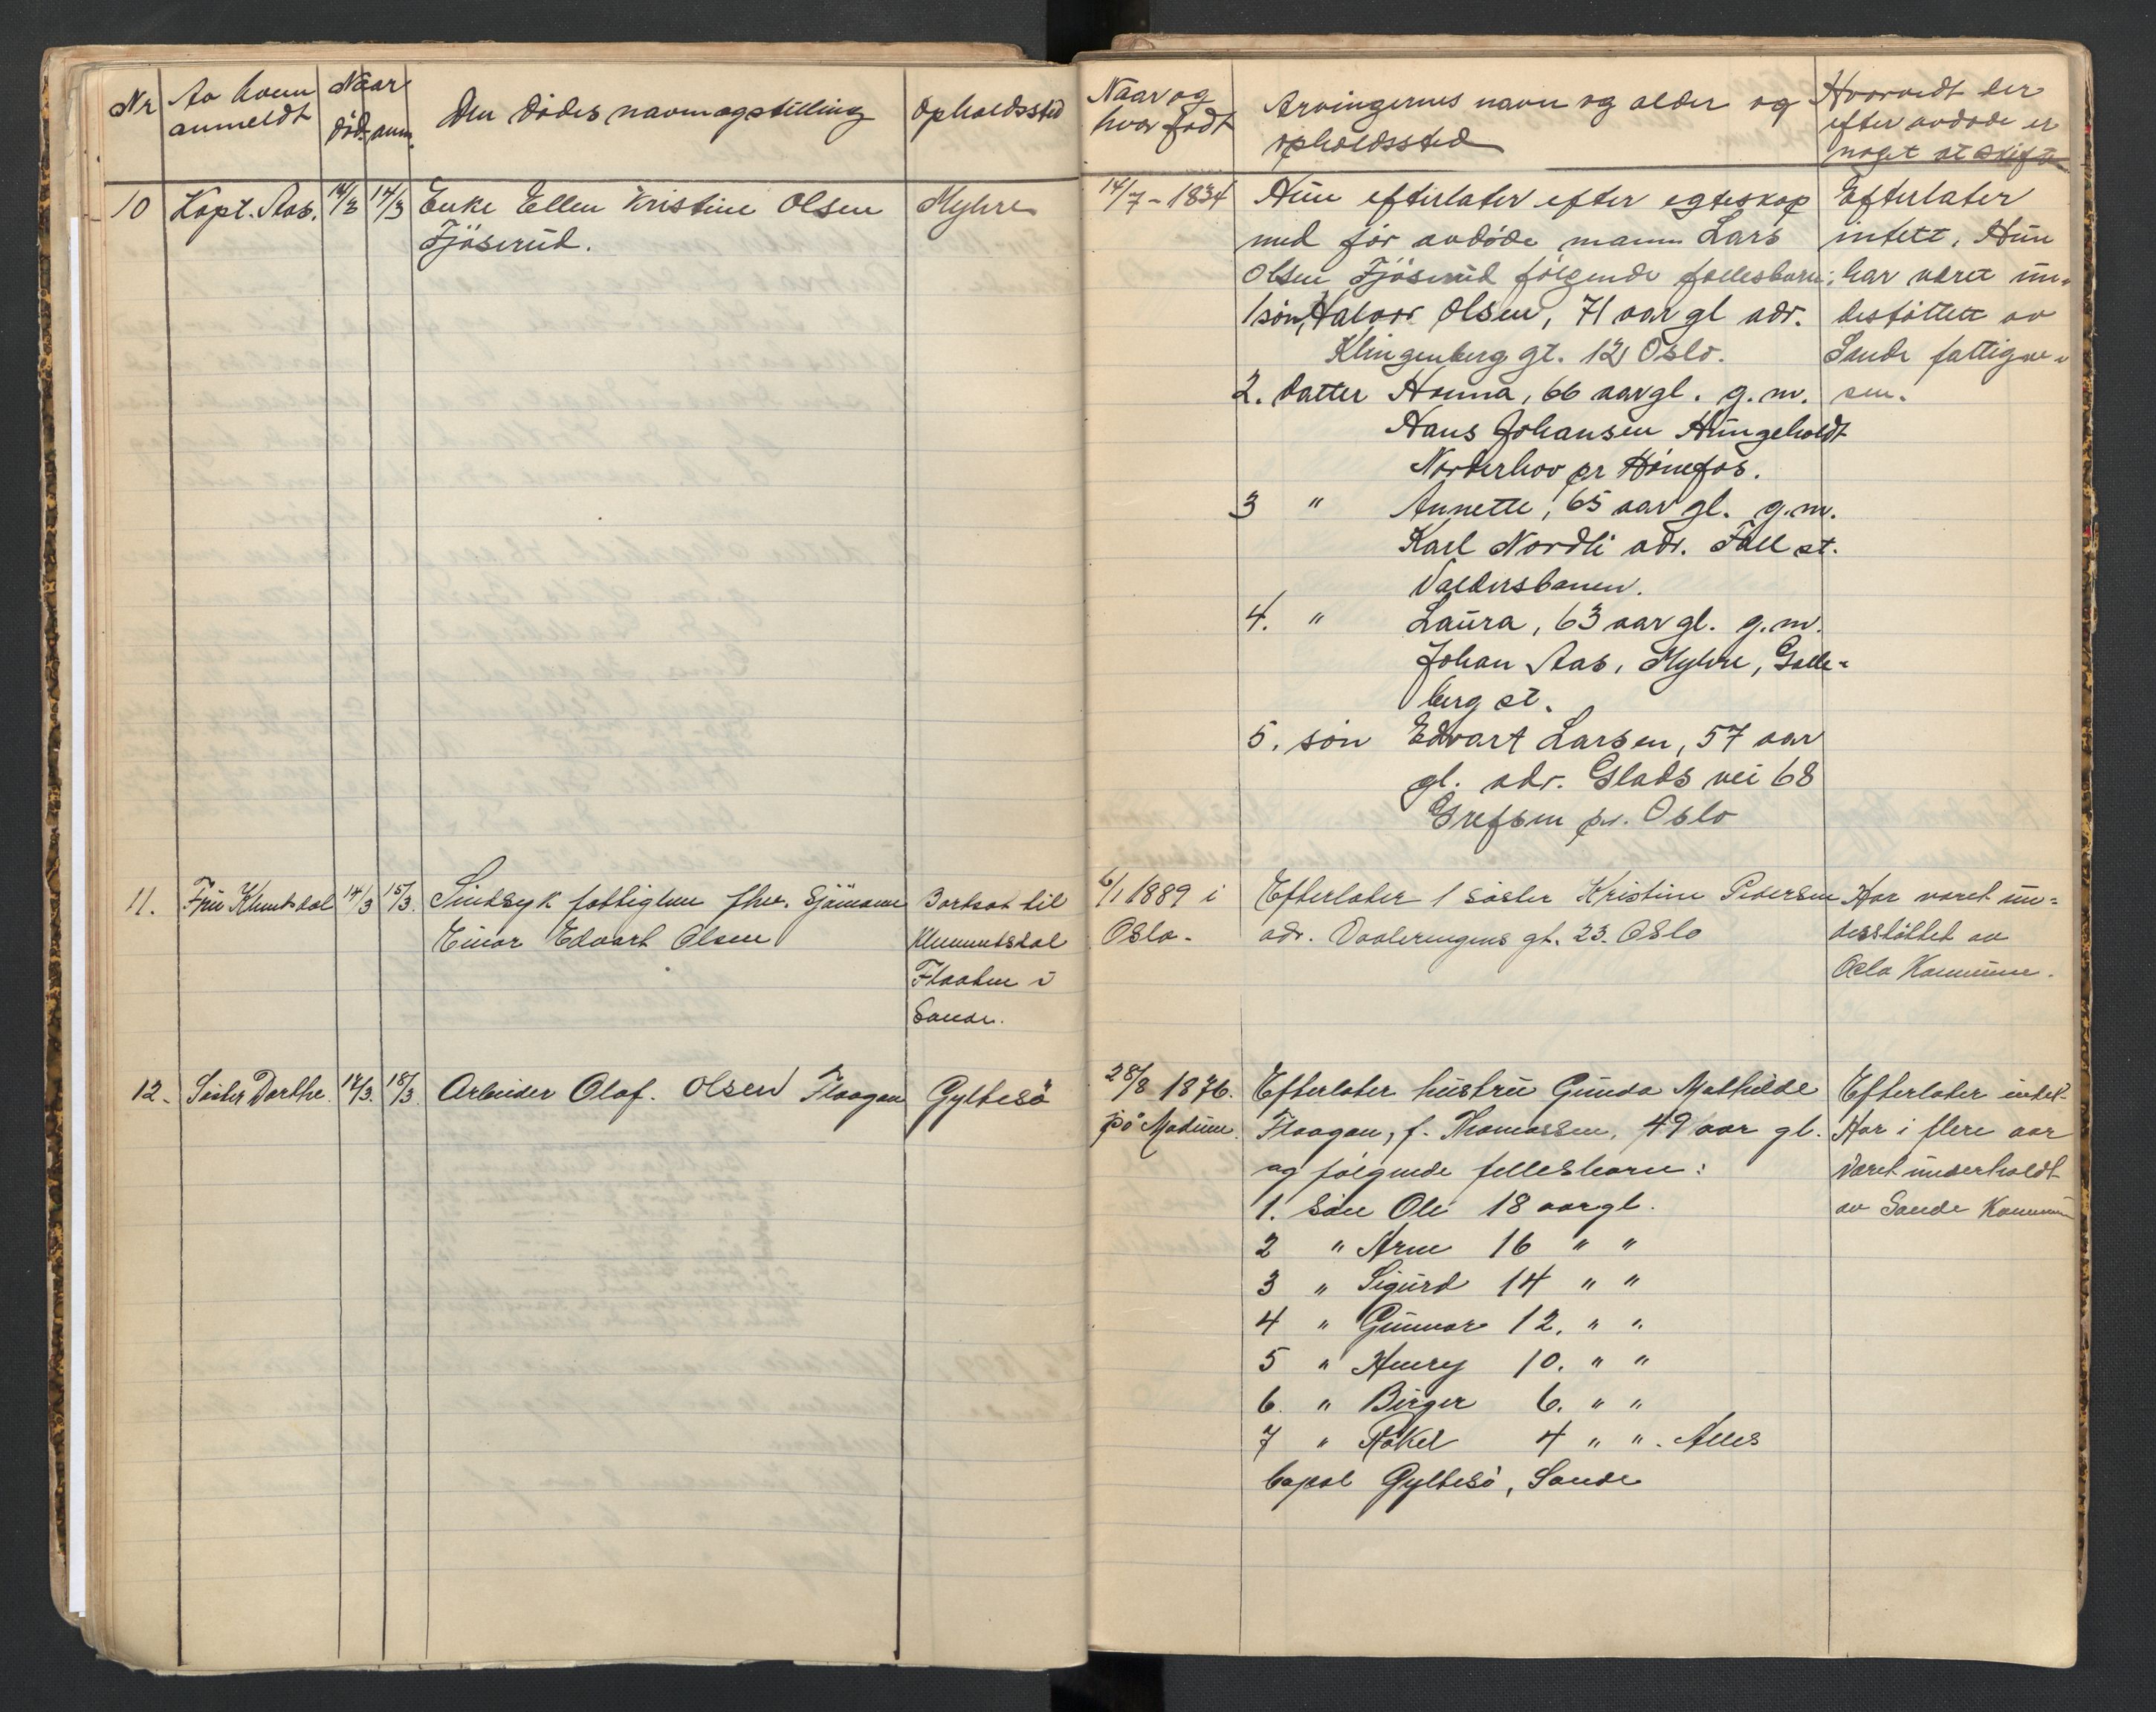 Nr
Av hvem
anmeldt
Naar
død. anm.
Den dødes navn og stilling
Opholdssted
Naar og
hvor født
Arvingernes navn og alder og
opholdssted
Hvorvidt der
efter avdøde er
noget at skifte
10
Kapt. Aas.
14/3
17/3
Enke Ellen Kristine Olsen
Fjøserud.
Myhre
14/7-1834
Hun efterlater efter egteskap
med før avdøde mann Lars
Olsen Fjøserud følgende fællesbarn:
1 søn, Halvor Olsen, 71 aar gl adr.
Klingenberg gt. 12, Oslo.
2. datter Hanna, 66 aar gl. g. m.
Hans Johansen Hungeholdt
Norderhov pr Hønefos.
3 " Annette, 65 aar gl. g.m.
Karl Nordli adr. Fall st.
Valdersbanen.
4. " Laura, 63 aar gl. g. m.
Johan Aas, Myhre, Galle-
berg st.
5. søn Edvart Larsen, 57 aar
gl. adr. Glads vei 68
Grefsen pr. Oslo
Efterlater
intett. Hun
har været un-
destøttett av
Sande fattigve-
sen.
11.
Fru Klemtsdal
14/3
15/3.
Sindsyk fattiglem fhv. Sjømann
Einar Edvart Olsen
Bortsat til
Klemmetsdal
Flaaten i
Sande.
6/1 1889 i
Oslo.
Efterlater 1 søster Kristine Pedersen
adr. Vaaleringens gt. 23. Oslo
Har været un-
derstøttet av
Oslo Kommune.
12.
Søster Dorthe.
17/3.
18/3
Arbeider Olaf. Olsen Flaagan
Gyltesø
28/8 1876.
på Modum.
Efterlater hustru Gunda Mathilde
Flaagan, f. Thomassen, 49 aar gl.
og følgende fellesbarn:
1. Søn Ole 18 aar gl.
2 " Arne 16 " "
3 " Sigurd 14 " "
4 " Gunnar 12. " "
5 " Henry 10. " "
6. " Birger 6. " "
7 " Rakel 4 " ". Alles
bopæl Gyltesø, Sande
Efterlater intet.
Har i flere aar
været underholdt
av Sande Kommune